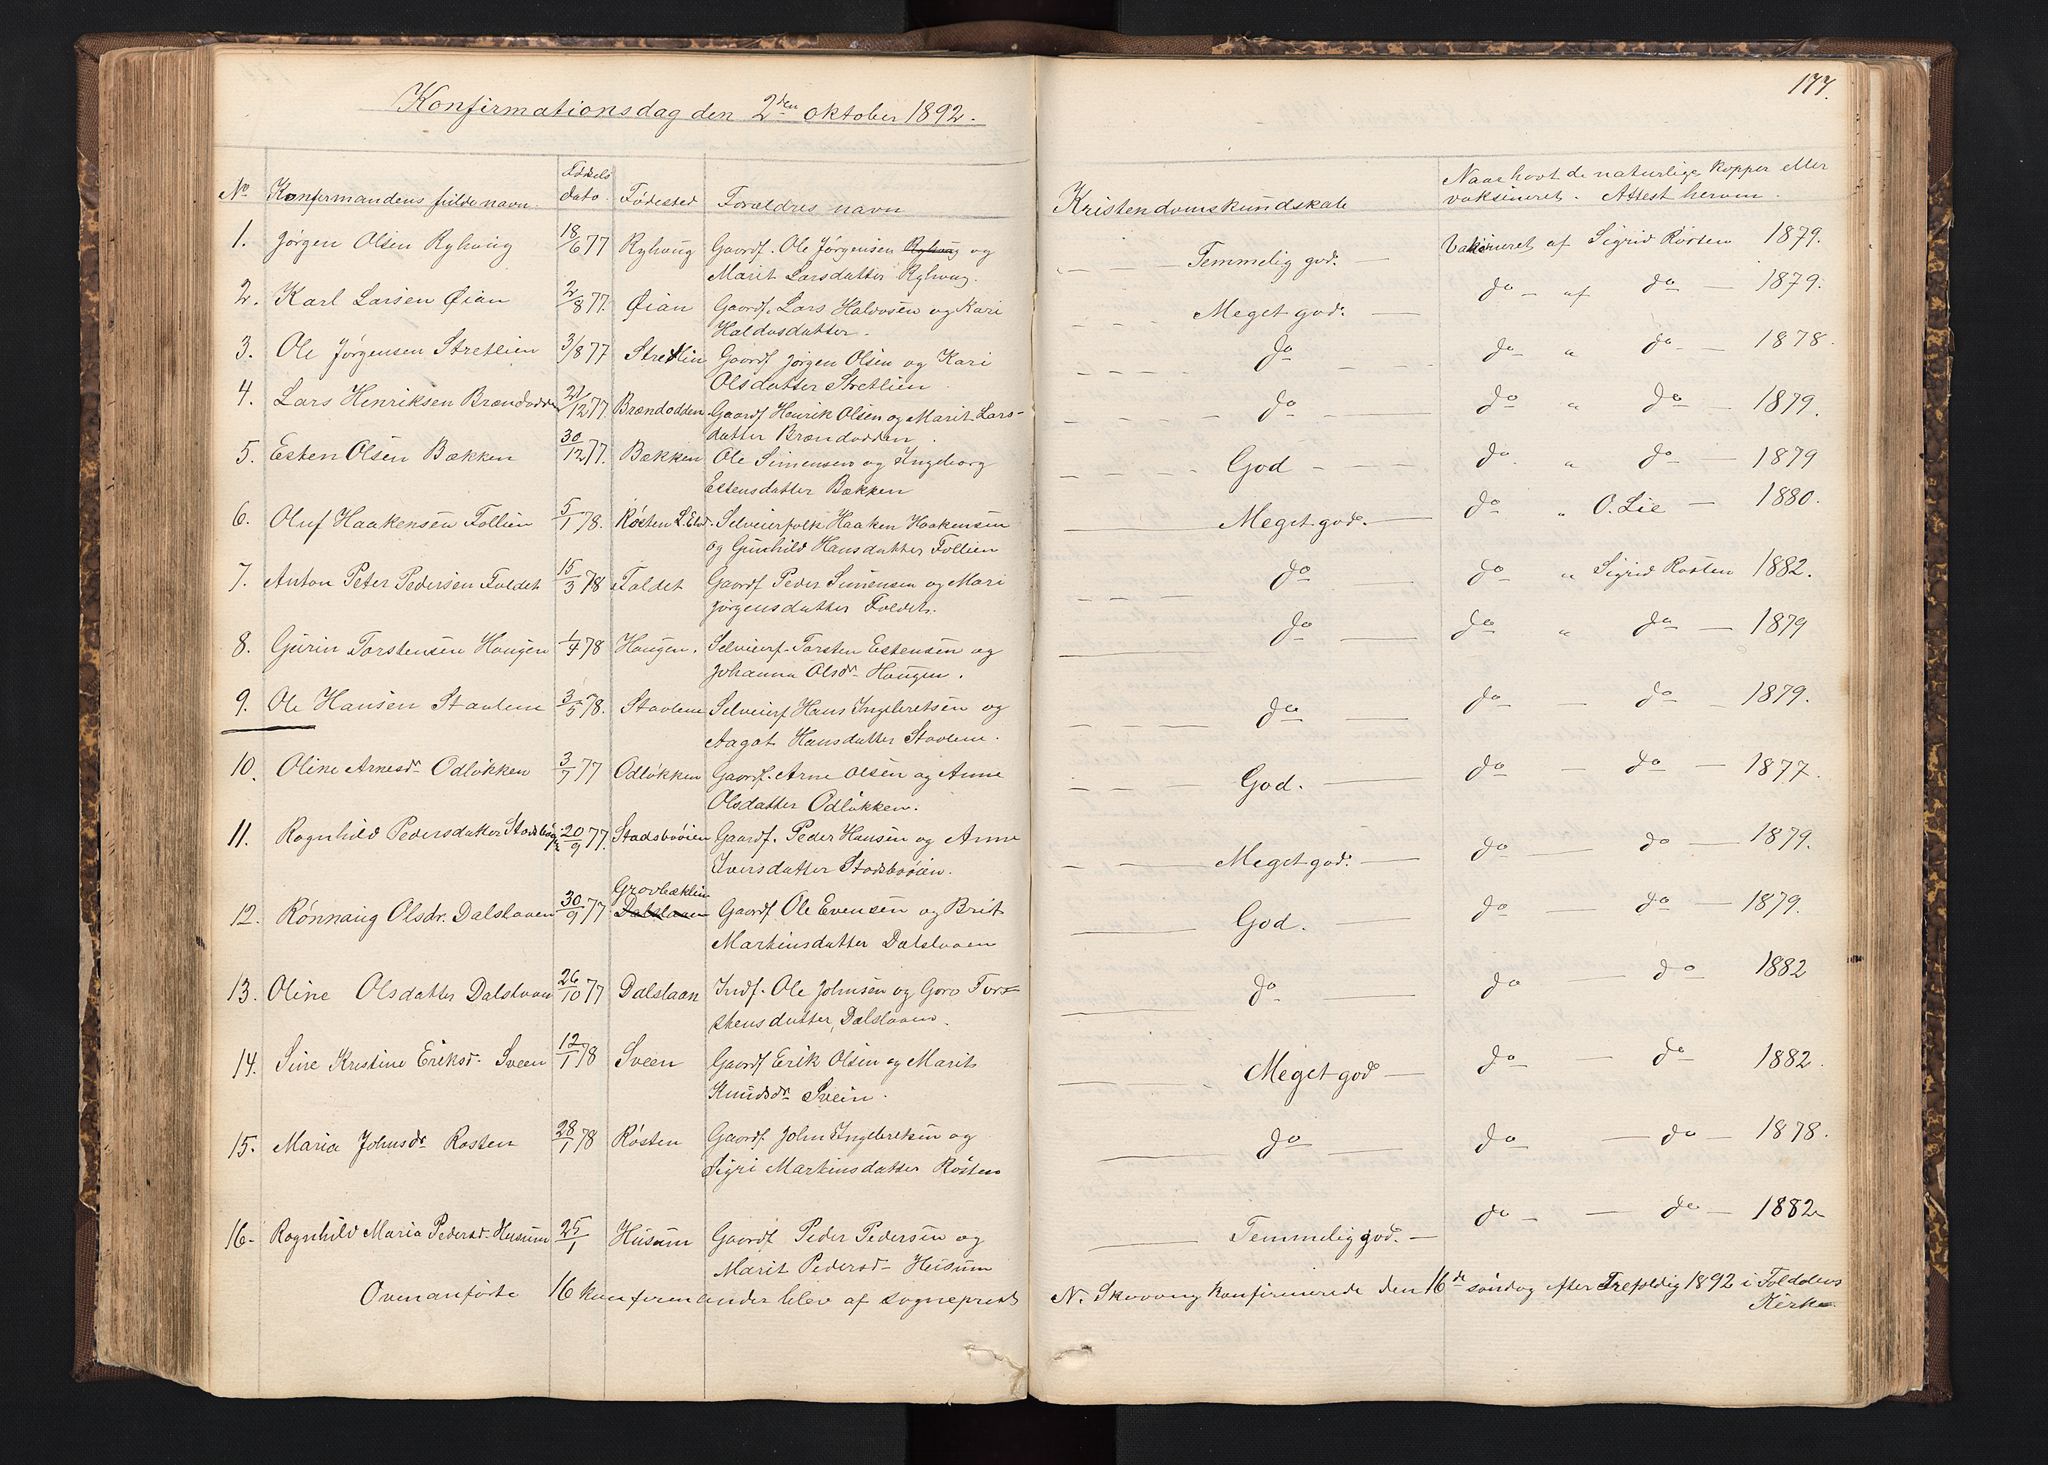 177.
Konfirmationsdag den 2den oktober 1892.
No Konfirmandens fulde navn. Fødselsdato. Fødested Forældres navn Kristendomskundskab Naar havt de naturlige Kopper eller vaksineret. Attest herom.
1. Jørgen Olsen Ryhaug 18/6 77 Ryhaug Gaardf. Ole Jørgensen Ryhaug og
Marit Larsdatter Ryhaug. Temmelig god. Vaksineret af Sigrid Røsten 1879.
2. Karl Larsen Øian 2/8 77. Øian Gaardf. Lars Halvosen og Kari
Haldosdatter. Meget god. do af do 1879.
3. Ole Jørgensen Stretlien 3/8 77 Stretlin Gaardf Jørgen Olsen og Kari
Olsdatter Stretlien. do do " do 1878.
4. Lars Henriksen Brændodden 21/12 77. Brændodden Gaardf Henrik Olsen og Marit Lars-
datter Brændodden. do do " do 1879.
5. Esten Olsen Bækken 30/12 77. Bækken Ole Simensen og Ingeborg
Estensdatter Bækken God do. " do 1879
6. Oluf Haakensen Follien 5/1 78. Røsten L. Elvd. Selveierfolk Haaken Haakensen
og Gunhild Hansdatter Follien Meget god. do " O. Lie 1880.
7. Anton Peter Pedersen Foldet 15/3 78 Foldet Gaardf Peder Simensen og Mari
Jørgensdatter Foldet. do do " Sigrid Røsten 1882.
8. Gurin Torstensen Hougen 1/4 78 Hougen. Selveierf. Torsten Estensen og
Johanna Olsdr. Hougen. do do " do 1879
9. Ole Hansen Stavlem 3/5 78. Stavlem Selveierf Hans Ingebretsen og
Aagot Hansdatter Stavlem. do do do 1879.
10. Oline Arnesdr Odløkken 3/7 77 Odløkken Gaardf. Arne Olsen og Anne
Olsdatter Odløkken. God. do do 1877.
11. Ragnhild Pedersdatter Stadsbøien 20/9 77. Stadsbøien Gaardf. Peder Hansen og Anne
Iversdatter Stadsbøien. Meget god. do do 1879.
12. Rønnaug Olsdr. Dalslaaen 30/9 77 Grovbæklien Dalslaaen Gaardf Ole Evensen og Brit
Martinsdatter Dalslaaen God. do do 1879.
13. Oline Olsdatter Dalslaaen 26/10 77 Dalslaan Indf. Ole Johnsen og Goro Tor-
stensdatter, Dalslaaen. do do do 1882
14. Sine Kristine Eriksd. Sveen 12/1 78 Sveen Gaardf Erik Olsen og Marit
Knudsdr Svein. Meget god do do 1882.
15. Maria Johnsdr Rosten 28/1 78 Røsten Gaardf. John Ingebretsen og
Sigri Martinsdatter Røsten do do do 1878.
16. Ragnhild Maria Pedersd. Husum 25/1 Husum Gaardf Peder Pedersen og
Marit Pedersd. Husum Temmelig god. do do 1882
Ovenanførte 16 konfirmander blev af sogneprest
N. Skaaong konfirmerede den 16de søndag efter Trefoldig 1892 i Foldalens
Kirke